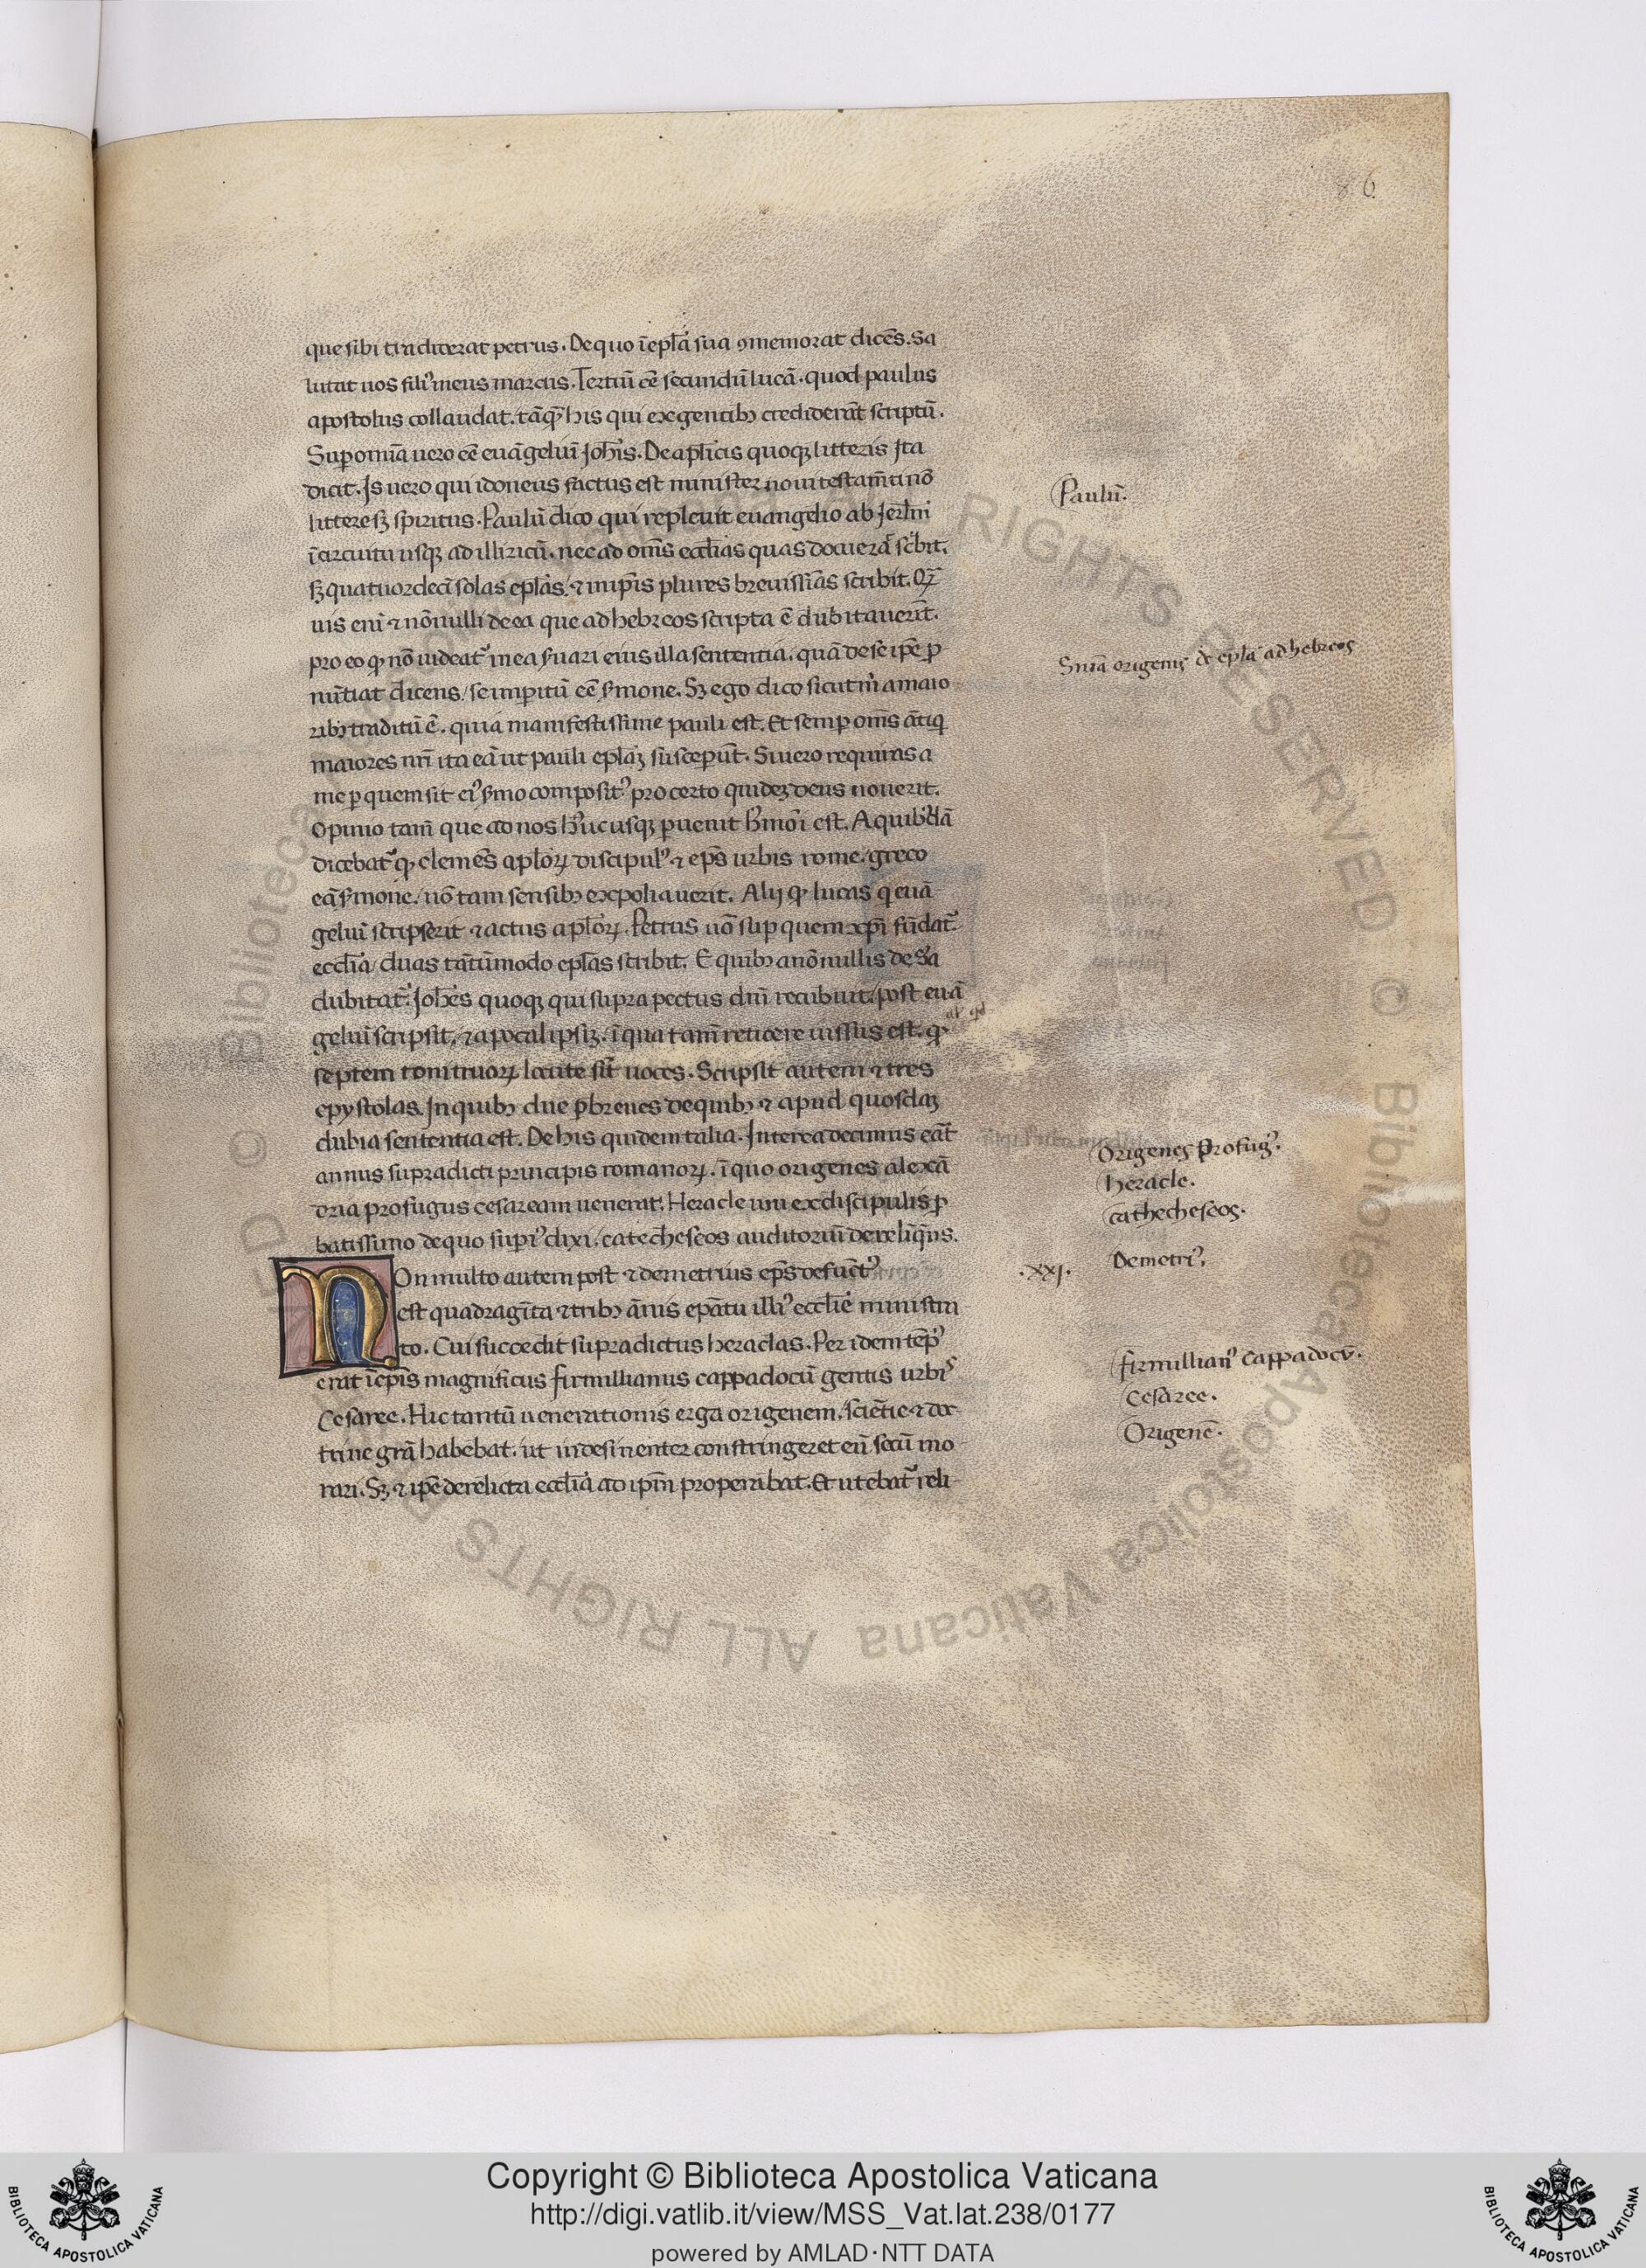 86
que sibi tradiderat petrus. De quo ī epl̄a sua ꝯmemorat dicēs. Sa
lutat uos filiꝰ meus marcus. Tertiū eē secundū lucā. quod paulus
apostolus collaudat. tāqꝫ his qui ex gentibꝫ crediderāt scriptū.
Suꝑ omīa uero eē euāgeluī Joh̄is. De apl̄icis quoqꝫ litteris Jta
dicit. Js uero qui idoneus factus est minister noui testam̄ti nō
littere sꝫ spiritus. Paulū dico qui repleuit euangelio ab Jerl̄m
ī circuitu usqꝫ ad illiricū. nec ad om̄s eccl̄ias quas docuerat sc̄bit.
sꝫ quatuordecī solas epl̄as. ⁊ in ip̄is plures breuissīas scribit. Qꝫ
uis enī ⁊ nōnulli de ea que ad hebreos scripta ē dubitauerīt.
pro eo ꝙ nō uideat᷑ in ea s̄uari eius illa sententia. quā de se ip̄e ꝓ
nūtiat dicens/ se imperitū eē s̄mone. Sꝫ ego dico sicut m̄ a maio
ribꝫ traditū ē. quia manifestissime pauli est. Et semꝑ om̄s ātiq
maiores nr̄i ita eā ut pauli epl̄aꝫ susceperūt. Si uero requiras a
me ꝑ quem sit eiꝰ s̄mo compositꝰ pro certo quideꝫ deus nouerit.
Opinio tam̄ que ad nos hucusqꝫ ꝑuenit hꝰmōi est. A quibꝰdā
dicebat᷑ ꝙ clemēs apl̄oꝝ discipulꝰ ⁊ ep̄s urbis rome/ greco
eā s̄mone/ nō tam sensibꝫ expoliauerit. Alij ꝙ lucas q euā
geluī scripserit ⁊ actus apl̄oꝝ. Petrus uō suꝑ quem xp̄i fūdat᷑
eccl̄ia/ duas tātūmodo epl̄as scribit. E quibꝫ a nōnullis de s̄a
dubitat᷑. Joh̄es quoqꝫ qui supra pectus dn̄i recubuit/ post euā
geluī scripsit/ ⁊ apocalipsiꝫ. ī qua tam̄ reticere iussus est. ꝙ
al' qd
septem tonitruoꝝ locute sīt uoces. Scripsit autem ⁊ tres
epystolas. In quibꝫ due ꝑbreues de quibꝫ ⁊ apud quosdaꝫ
dubia sententia est. De his quidem talia. Jnterea decimus erat
annus supradicti principis romanoꝝ. ī quo origenes alexā
dria profugus cesaream uenerat. Heracle uni ex discipulis ꝓ
batissimo de quo supiꝰ dixi/ catecheseos auditoriū derelīqns.
NOn multo autem post ⁊ demetrius ep̄s defūctꝰ
est quadragīta ⁊ tribꝫ ānis ep̄atu illiꝰ eccl̄ie ministra
to. Cui succedit supradictus heraclas. Per idem tēpꝰ
erat ī ep̄is magnificus firmillianus cappadocū gentis urbis
Cesaree. Hic tantū uenerationis erga origenem. sciētie ⁊ doc
trine gr̄a habebat. ut indesinenter constringeret eū secū mo
rari. Sꝫ ⁊ ip̄e derelicta eccl̄ia ad ip̄m properabat. Et utebat᷑ reli
Paulū.
Snīa origenis de epl̄a ad hebreos
Origenes Profugꝰ.
heracle.
cathecheseos.
.xxj. Demetriꝰ.
firmillianꝰ Cappadocū.
Cesaree.
Origenē.
Copyright © Biblioteca Apostolica Vaticana
http://digi.vatlib.it/view/MSS_Vat.lat.238/0177
powered by AMLAD·NTT DATA
BIBLIOTECA APOSTOLICA VATICANA
BIBLIOTECA APOSTOLICA VATICANA
Biblioteca Apostolica Vaticana ALL RIGHTS RESERVED ©